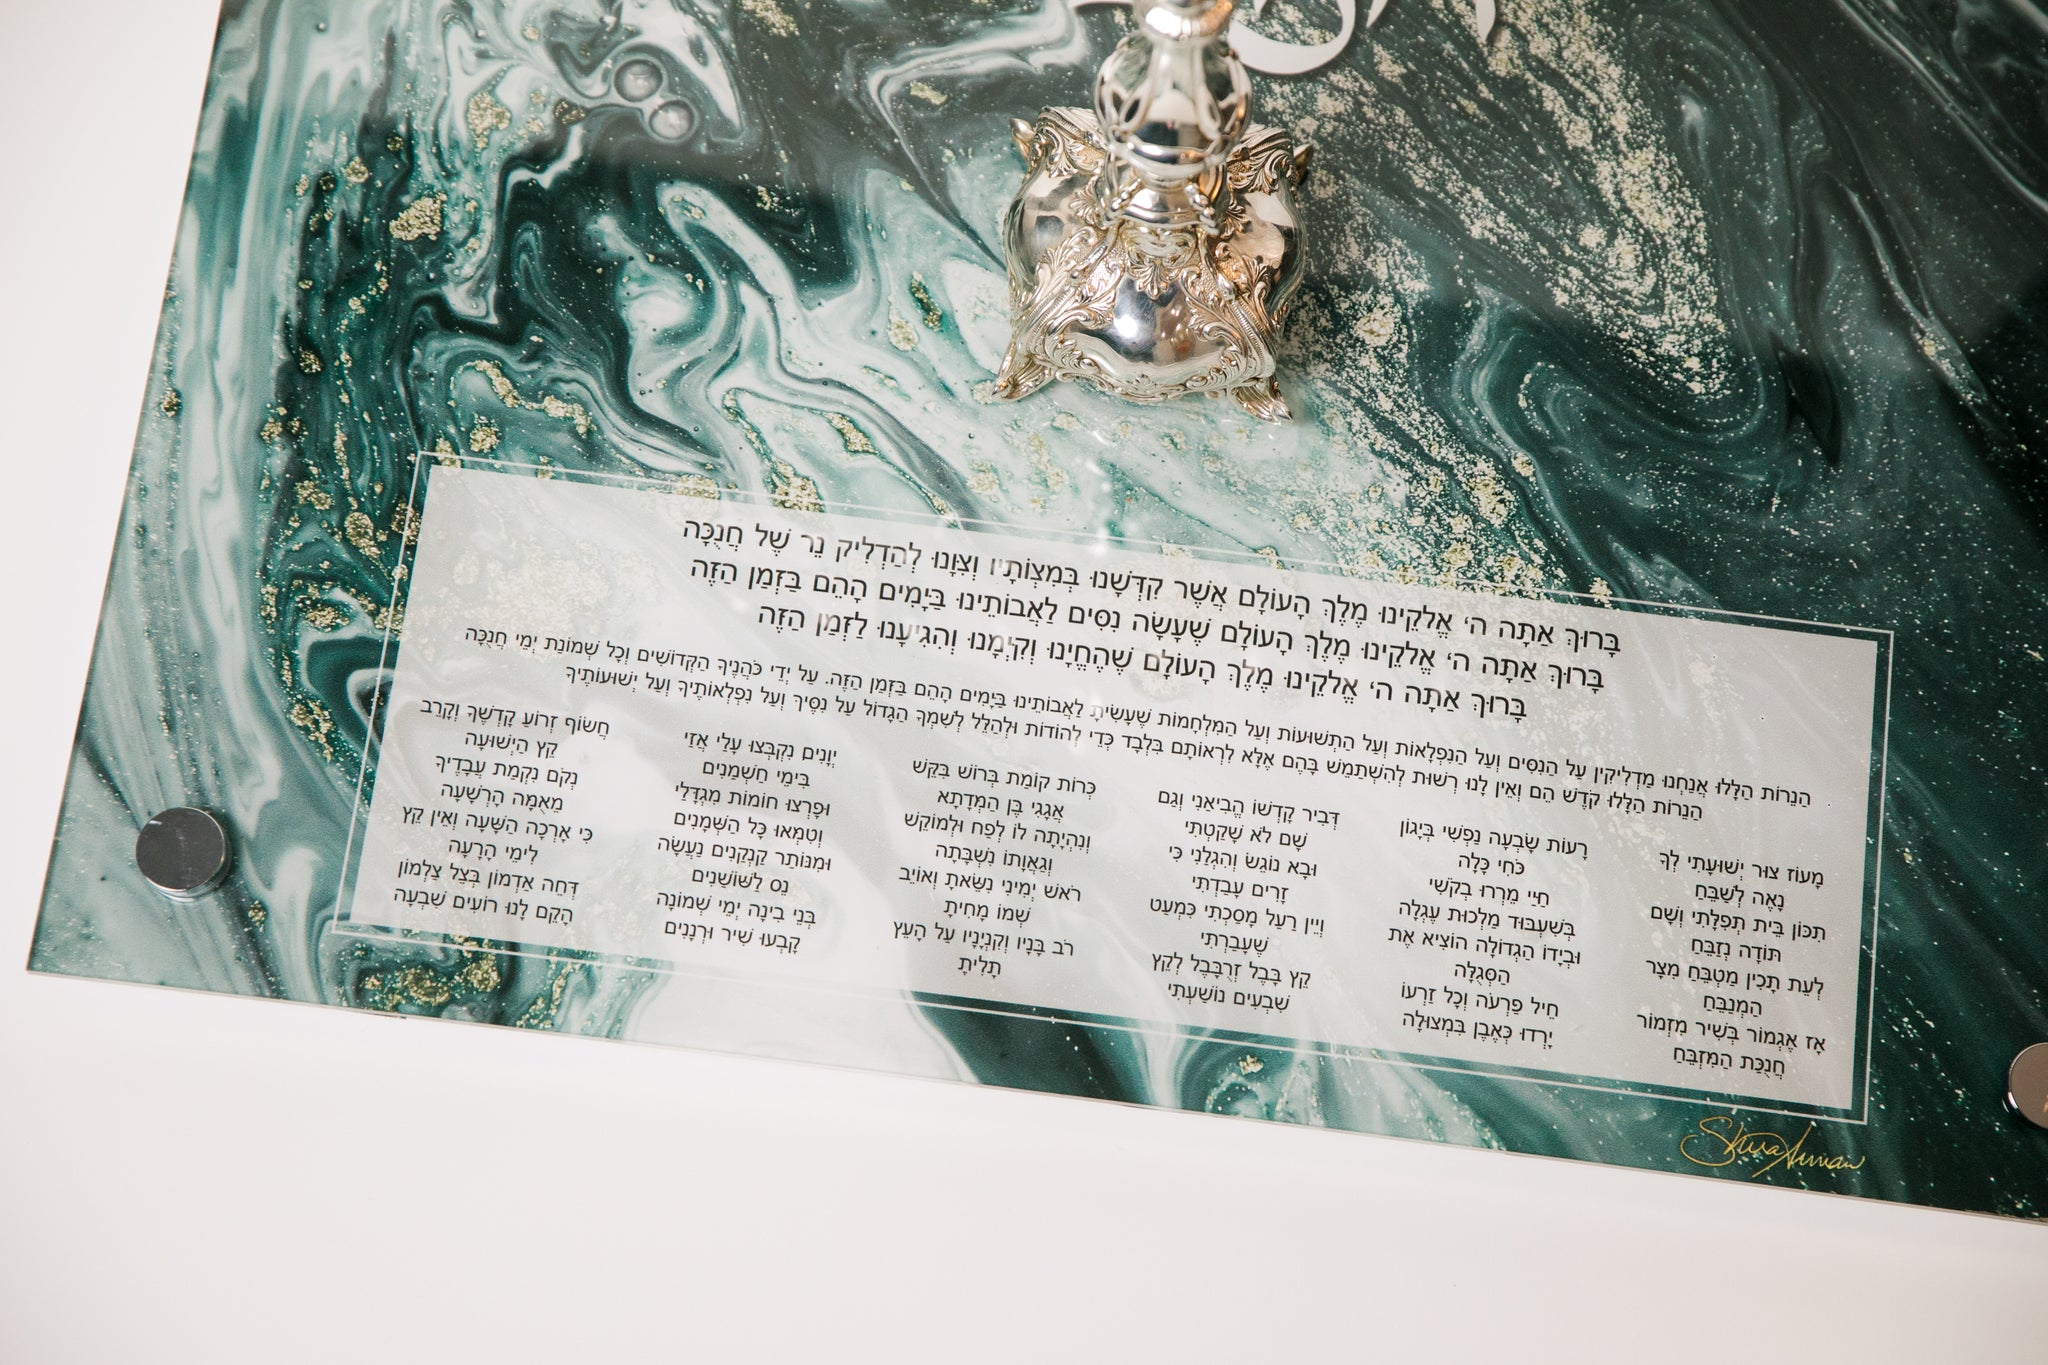 בָּרוּךְ אַתָּה ה' אֱלֹקֵינוּ מֶלֶךְ הָעוֹלָם אֲשֶׁר קִדְּשָׁנוּ בְּמִצְוֹתָיו וְצִוָּנוּ לְהַדְלִיק נֵר שֶׁל חֲנֻכָּה
בָּרוּךְ אַתָּה ה' אֱלֹקֵינוּ מֶלֶךְ הָעוֹלָם שֶׁעָשָׂה נִסִּים לַאֲבוֹתֵינוּ בַּיָּמִים הָהֵם בַּזְּמַן הַזֶּה
בָּרוּךְ אַתָּה ה' אֱלֹקֵינוּ מֶלֶךְ הָעוֹלָם שֶׁהֶחֱיָנוּ וְקִיְּמָנוּ וְהִגִּיעָנוּ לַזְּמַן הַזֶּה
הַנֵּרוֹת הַלָּלוּ אֲנַחְנוּ מַדְלִיקִין עַל הַנִּסִּים וְעַל הַנִּפְלָאוֹת וְעַל הַתְּשׁוּעוֹת וְעַל הַמִּלְחָמוֹת שֶׁעָשִׂיתָ לַאֲבוֹתֵינוּ בַּיָּמִים הָהֵם בַּזְּמַן הַזֶּה. עַל יְדֵי כֹּהֲנֶיךָ הַקְּדוֹשִׁים וְכָל שְׁמוֹנַת יְמֵי חֲנֻכָּה
הַנֵּרוֹת הַלָּלוּ קֹדֶשׁ הֵם וְאֵין לָנוּ רְשׁוּת לְהִשְׁתַּמֵּשׁ בָּהֶם אֶלָּא לִרְאוֹתָם בִּלְבָד כְּדֵי לְהוֹדוֹת וּלְהַלֵּל לְשִׁמְךָ הַגָּדוֹל עַל נִסֶּיךָ וְעַל נִפְלְאוֹתֶיךָ וְעַל יְשׁוּעוֹתֶיךָ
מָעוֹז צוּר יְשׁוּעָתִי לְךָ
נָאֶה לְשַׁבֵּחַ
תִּכּוֹן בֵּית תְּפִלָּתִי וְשָׁם
תּוֹדָה נְזַבֵּחַ
לְעֵת תָּכִין מַטְבֵּחַ מִצָּר
הַמְנַבֵּחַ
אָז אֶגְמוֹר בְּשִׁיר מִזְמוֹר
חֲנֻכַּת הַמִּזְבֵּחַ
רָעוֹת שָׂבְעָה נַפְשִׁי בְּיָגוֹן
כֹּחִי כָּלָה
חַיַּי מֵרְרוּ בְקֹשִׁי
בְּשִׁעְבּוּד מַלְכוּת עֶגְלָה
וּבְיָדוֹ הַגְּדוֹלָה הוֹצִיא אֶת
הַסְּגֻלָּה
חֵיל פַּרְעֹה וְכָל זַרְעוֹ
יָרְדוּ כְּאֶבֶן בִּמְצוּלָה
דְּבִיר קָדְשׁוֹ הֱבִיאַנִי וְגַם
שָׁם לֹא שָׁקַטְתִּי
וּבָא נוֹגֵשׂ וְהִגְלַנִי כִּי
זָרִים עָבַדְתִּי
וְיֵין רַעַל מָסַכְתִּי כִּמְעַט
שֶׁעָבַרְתִּי
קֵץ בָּבֶל זְרֻבָּבֶל לְקֵץ
שִׁבְעִים נוֹשַׁעְתִּי
כְּרוֹת קוֹמַת בְּרוֹשׁ בִּקֵּשׁ
אֲגָגִי בֶּן הַמְּדָתָא
וְנִהְיָתָה לוֹ לְפַח וּלְמוֹקֵשׁ
וְגַאֲוָתוֹ נִשְׁבָּתָה
רֹאשׁ יְמִינִי נִשֵּׂאתָ וְאוֹיֵב
שְׁמוֹ מָחִיתָ
רֹב בָּנָיו וְקִנְיָנָיו עַל הָעֵץ
תָּלִיתָ
יְוָנִים נִקְבְּצוּ עָלַי אֲזַי
בִּימֵי חַשְׁמַנִּים
וּפָרְצוּ חוֹמוֹת מִגְדָּלַי
וְטִמְּאוּ כָּל הַשְּׁמָנִים
וּמִנּוֹתַר קַנְקַנִּים נַעֲשָׂה
נֵס לַשּׁוֹשַׁנִּים
בְּנֵי בִינָה יְמֵי שְׁמוֹנָה
קָבְעוּ שִׁיר וּרְנָנִים
חֲשׂוֹף זְרוֹעַ קָדְשֶׁךָ וְקָרֵב
קֵץ הַיְשׁוּעָה
נְקֹם נִקְמַת עֲבָדֶיךָ
מֵאֻמָּה הָרְשָׁעָה
כִּי אָרְכָה הַשָּׁעָה וְאֵין קֵץ
לִימֵי הָרָעָה
דְּחֵה אַדְמוֹן בְּצֵל צַלְמוֹן
הָקֵם לָנוּ רוֹעִים שִׁבְעָה